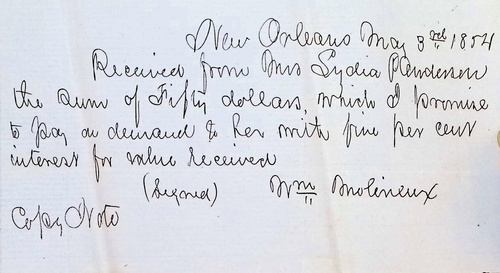 New Orleans May 3rd 1854
Received from Mrs Lydia Henderson
the Sum of Fifty dollars, which I promise
to pay on demand to her with five per cent
interest for value received
(Signed) Wm Molineux
Copy Note